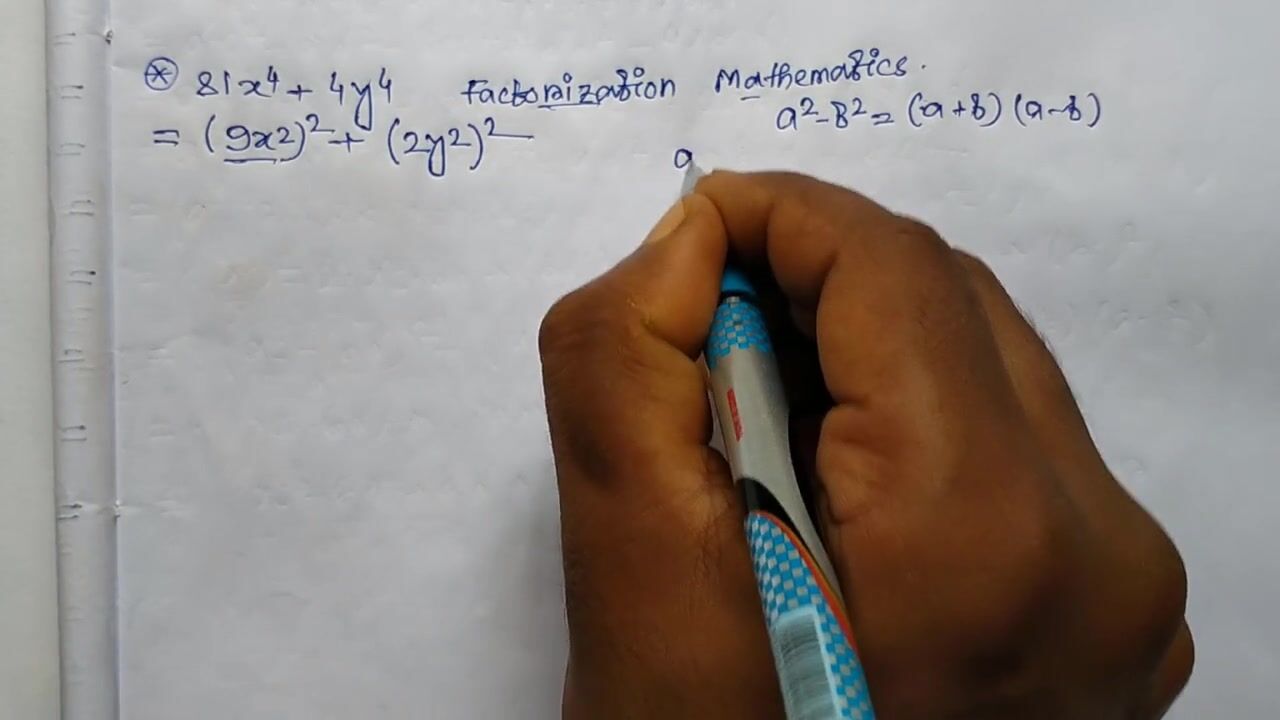 ⊛ 81x⁴ + 4y⁴ Factorization Mathematics.
= (9x²)² + (2y²)² a²-b² = (a+b) (a-b)
a